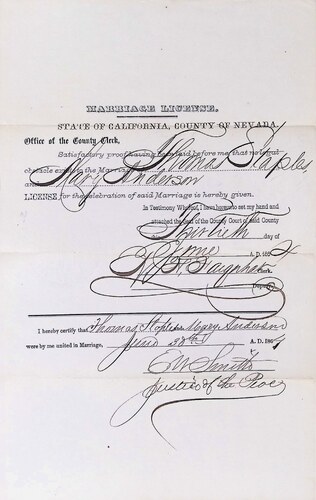 MARRIAGE LICENSE.
STATE OF CALIFORNIA, COUNTY OF NEVADA.
Office of the County Clerk,
Satisfactory proof having been made before me that no legal
obstacle exists to the Marriage Thomas Staples,
and Mary Anderson
LICENSE for the celebration of said Marriage is hereby given.
In Testimony Whereof, I have hereunto set my hand and
attached the seal of the County Court of said County
day of
June A. D. 186
Clerk.
Deputy
I hereby certify that Thomas Staples & Mary Anderson
were by me united in Marriage, A. D. 186
E W Smith
Justice of the Peace